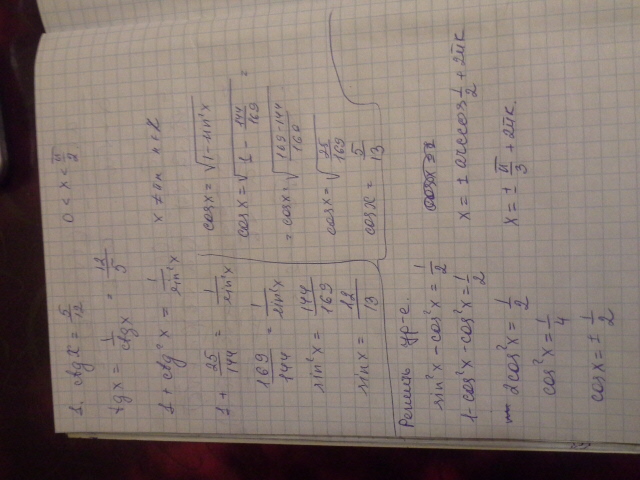 1. ctg x = 5/12   0 < x < π/2
tg x = 1/ctg x = 12/5
1 + ctg² x = 1/sin² x   x ≠ πn n ∈ Z
1 + 25/144 = 1/sin² x
169/144 = 1/sin² x
sin² x = 144/169
sin x = 12/13
cos x = √1 - sin² x
cos x = √1 - 144/169 =
= cos x = √169-144/169
cos x = √25/169
cos x = 5/13
Решить ур-е.
sin² x - cos² x = 1/2
1 - cos² x - cos² x = 1/2
2cos² x = 1/2
cos² x = 1/4
cos x = ± 1/2
x = ± arccos 1/2 + 2πk
x = ± π/3 + 2πk